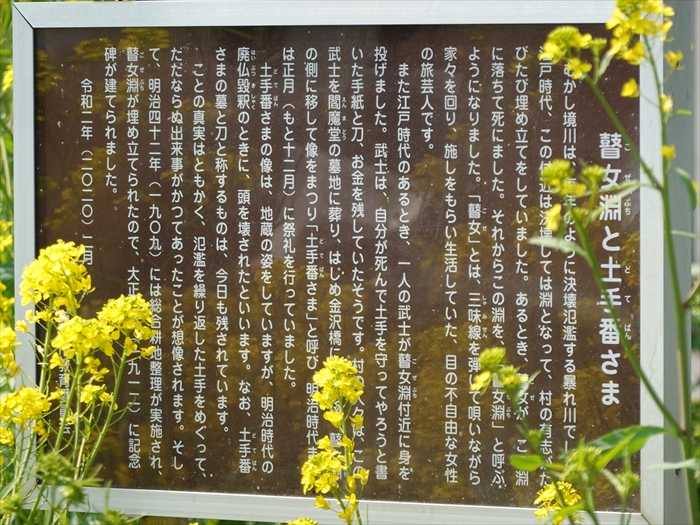 瞽女淵と土手番さま
ごぜぶち どてばん
むかし境川は、 のように決壊氾濫する暴れ川で
江戸時代、この 近は決壊しては淵となって、村の有志
びたび埋め立てをしていました。あるとき、 女が、こ 淵
に落ちて死にました。それからこの淵を 女淵」と呼ぶ
ようになりました。「瞽女」とは、三味線を弾 て唄いながら
家々を回り、施しをもらい生活していた、目の不自由な女性
の旅芸人です。
また江戸時代のあるとき、一人の武士が瞽女淵付近に身を
投げました。武士は、自分が死んで土手を守ってやろうと書
いた手紙と刀、お金を残していたそうです。村 々は、この
武士を閻魔堂の墓地に葬り、はじめ金沢橋 、 瞽
の側に移して像をまつり「土手番さま」と呼び、 明治時代ま
は正月（もと十二月）に祭礼を行っていました。
土手番さまの像は、地蔵の姿をしていますが、明治時代の
廃仏毀釈のときに、頭を壊されたといいます。なお、土手番
さまの墓と刀と称するものは、今日も残されています。
ことの真実はともかく、氾濫を繰り返した土手をめぐって、
ただならぬ出来事がかつてあったことが想像されます。そし
て、明治四十二年（一九〇九）には総合耕地整理が実施され、
瞽女淵が埋め立てられたので、大正 一九一二）に記念
碑が建てられました。
令和二年（二〇二〇）二月
教育委員会